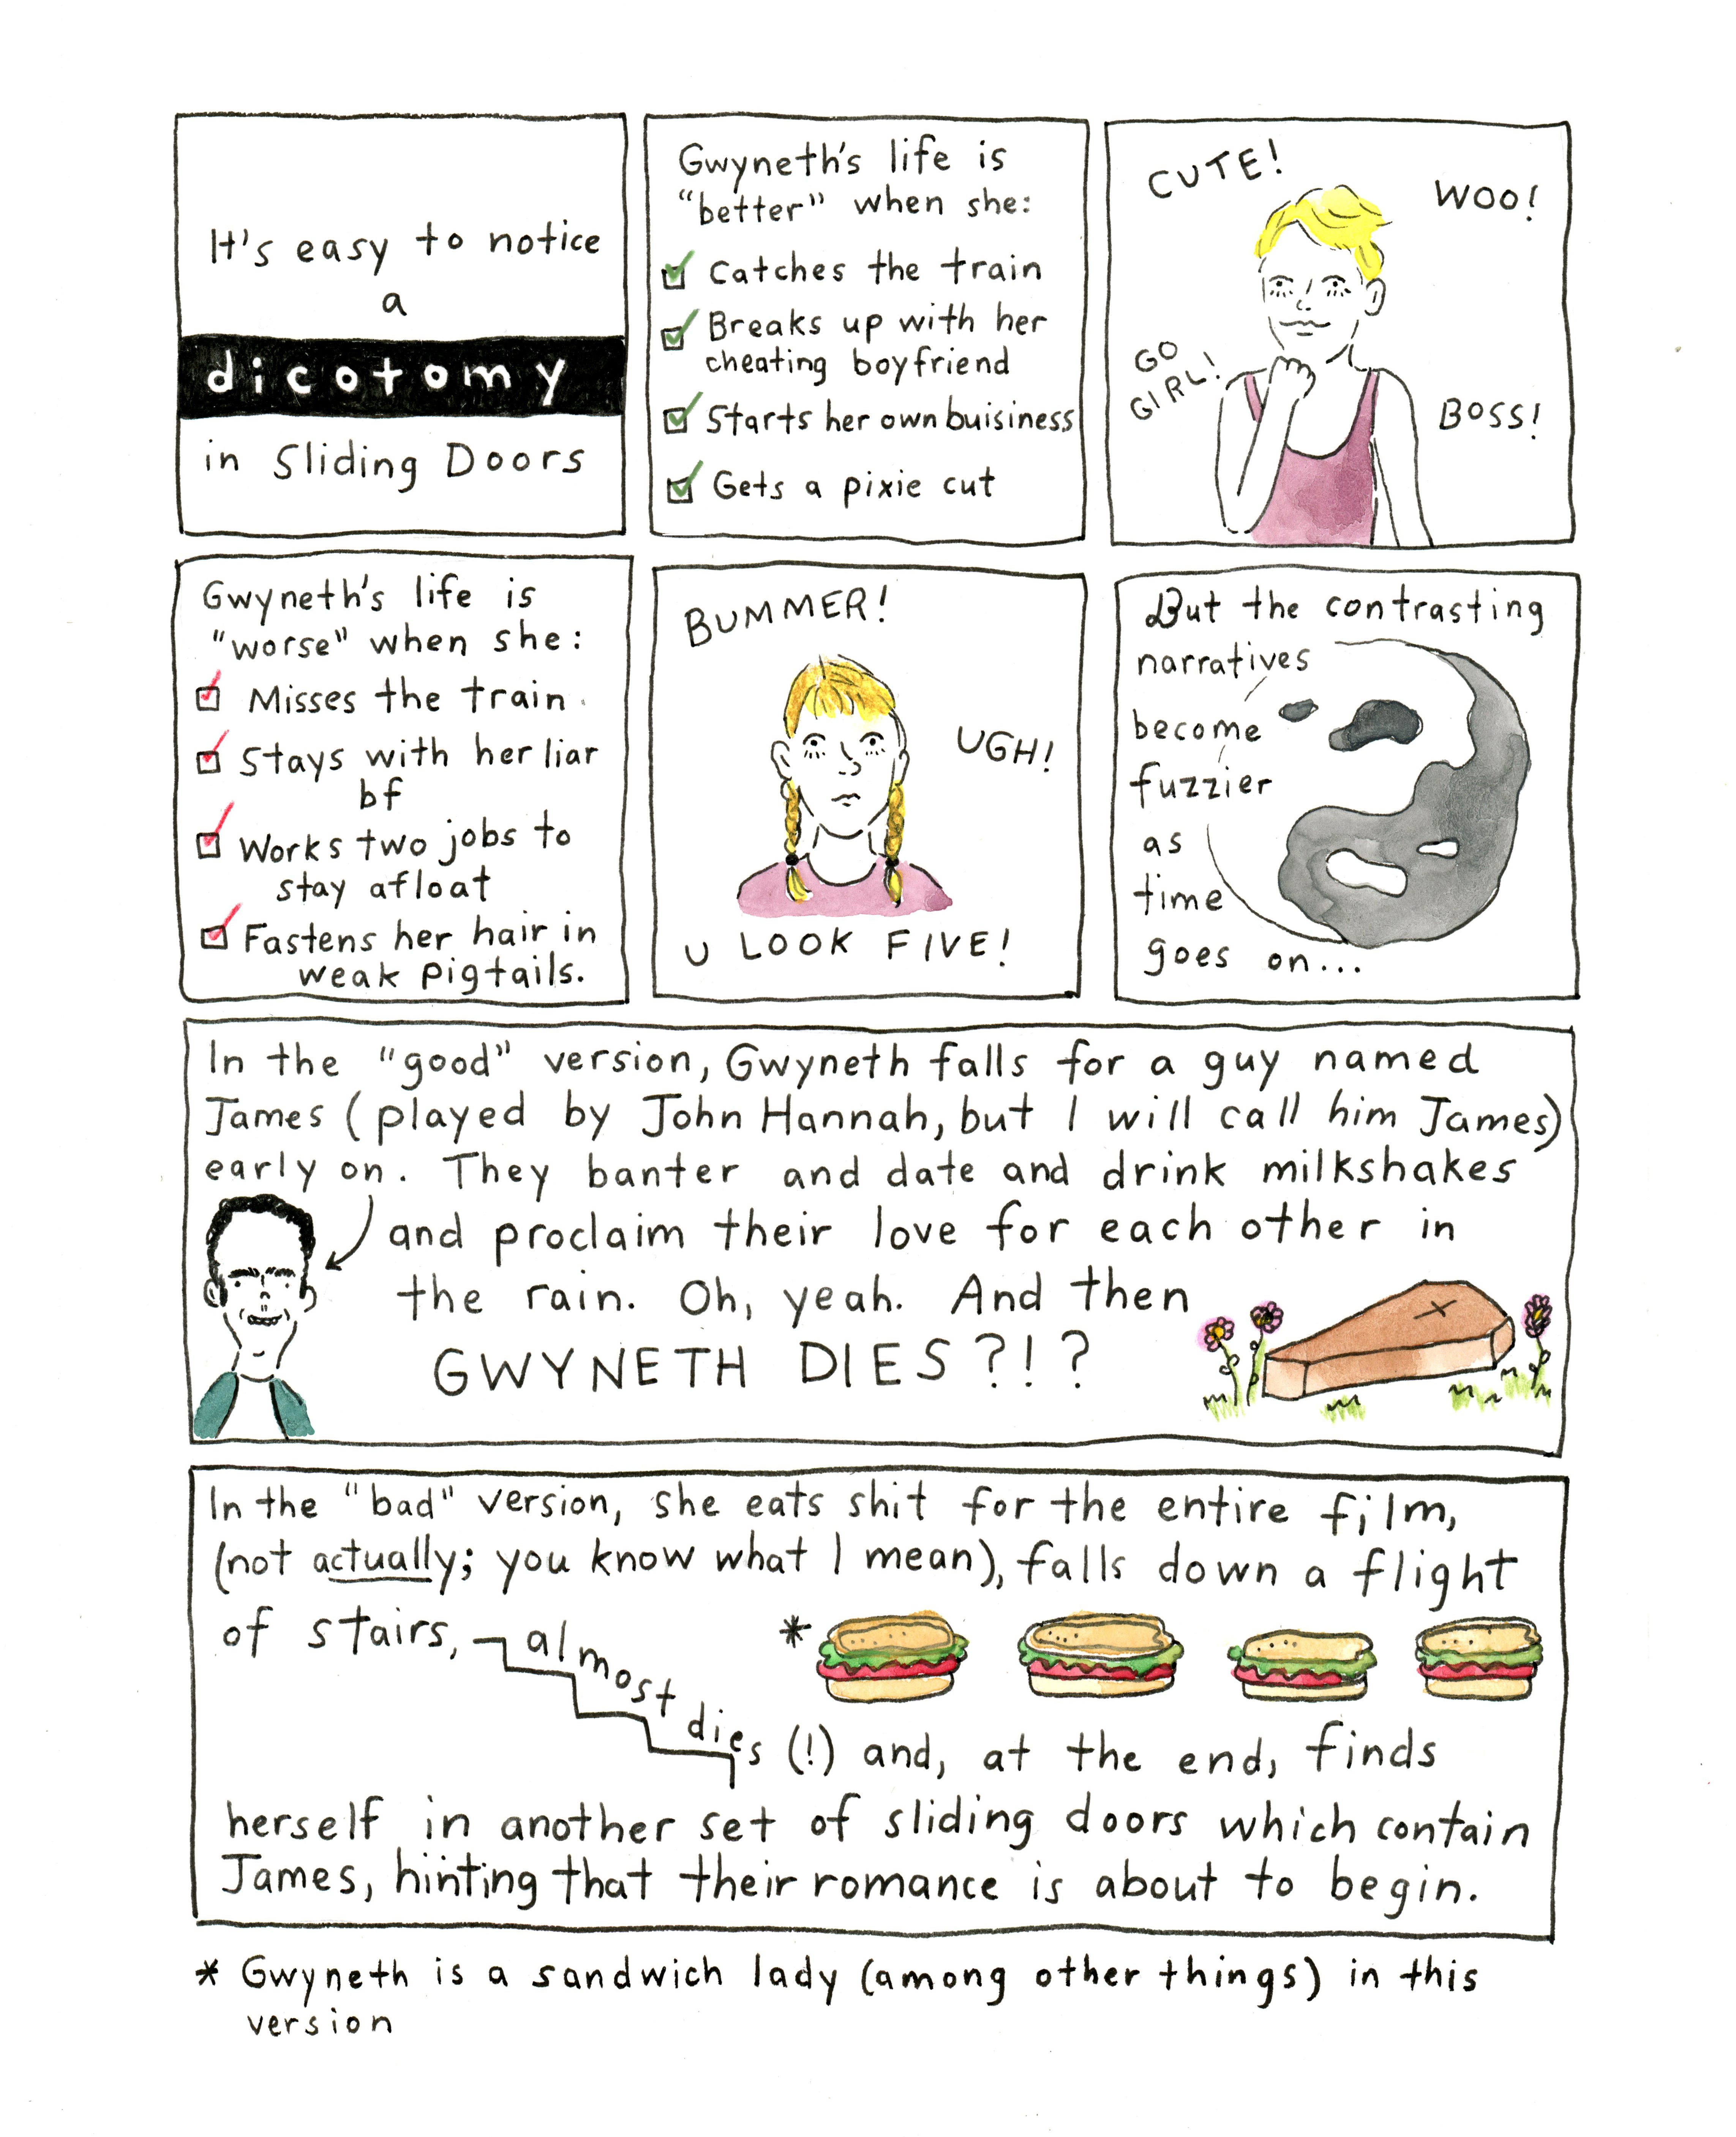 It's easy to notice
a
dicotomy
in Sliding Doors
Gwyneth's life is
"better" when she:
Catches the train
Breaks up with her
cheating boyfriend
Starts her own buisiness
Gets a pixie cut
CUTE!
WOO!
GO
GIRL!
BOSS!
Gwyneth's life is
"worse" when she:
Misses the train
Stays with her liar
bf
Works two jobs to
stay afloat
Fastens her hair in
weak pigtails.
BUMMER!
UGH!
U LOOK FIVE!
But the contrasting
narratives
become
fuzzier
as
time
goes on...
In the "good" version, Gwyneth falls for a guy named
James (played by John Hannah, but I will call him James)
early on. They banter and date and drink milkshakes
and proclaim their love for each other in
the rain. Oh, yeah. And then
GWYNETH DIES?!?
In the "bad" version, she eats shit for the entire film,
(not actually; you know what I mean), falls down a flight
of stairs, almost dies (!) and, at the end, finds
*
herself in another set of sliding doors which contain
James, hinting that their romance is about to begin.
* Gwyneth is a sandwich lady (among other things) in this
version